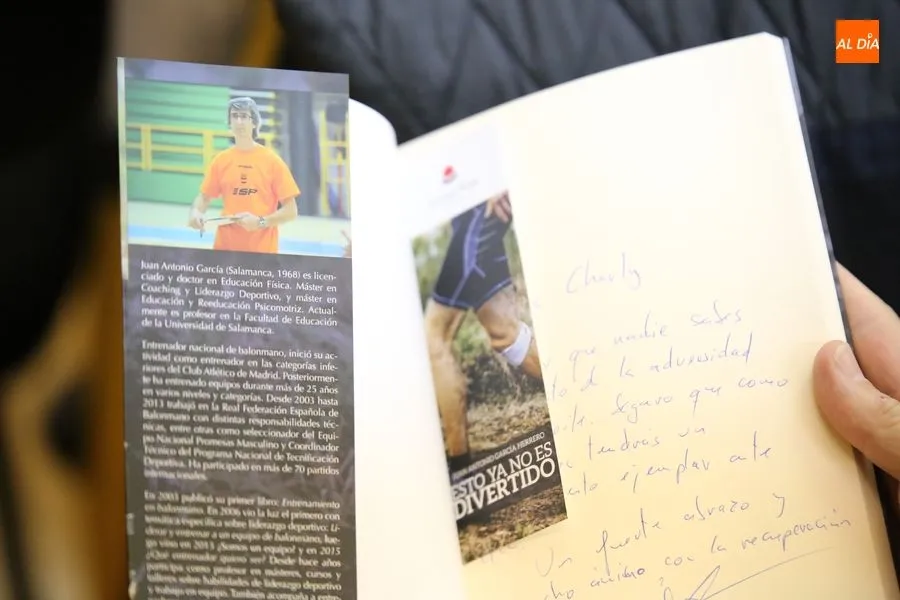 AL DÍA
ESP
Juan Antonio García (Salamanca, 1968) es licen-
ciado y doctor en Educación Física. Máster en
Coaching y Liderazgo Deportivo, y máster en
Educación y Reeducación Psicomotriz. Actual-
mente es profesor en la Facultad de Educación
de la Universidad de Salamanca.
Entrenador nacional de balonmano, inició su ac-
tividad como entrenador en las categorías infe-
riores del Club Atlético de Madrid. Posteriormen-
te ha entrenado equipos durante más de 25 años
en varios niveles y categorías. Desde 2003 hasta
2013 trabajó en la Real Federación Española de
Balonmano con distintas responsabilidades téc-
nicas, entre otras como seleccionador del Equi-
po Nacional Promesas Masculino y Coordinador
Técnico del Programa Nacional de Tecnificación
Deportiva. Ha participado en más de 70 partidos
internacionales.
En 2003 publicó su primer libro: Entrenamiento
en balonmano. En 2006 vio la luz el primero con
temática específica sobre liderazgo deportivo: Li-
derar y entrenar a un equipo de balonmano, lue-
go vino en 2013 ¿Somos un equipo? y en 2015
¿Qué entrenador quiero ser? Desde hace años
participa como profesor en másteres, cursos y
talleres sobre habilidades de liderazgo deportivo
y trabajo en equipo. También acompaña a entre-
JUAN ANTONIO GARCÍA HERRERO
ESTO YA NO ES
DIVERTIDO
Charly
que nadie sabes
de la adversidad
Seguro que como
tendrás un
ejemplar ante
Un fuerte abrazo y
ánimo con la recuperación